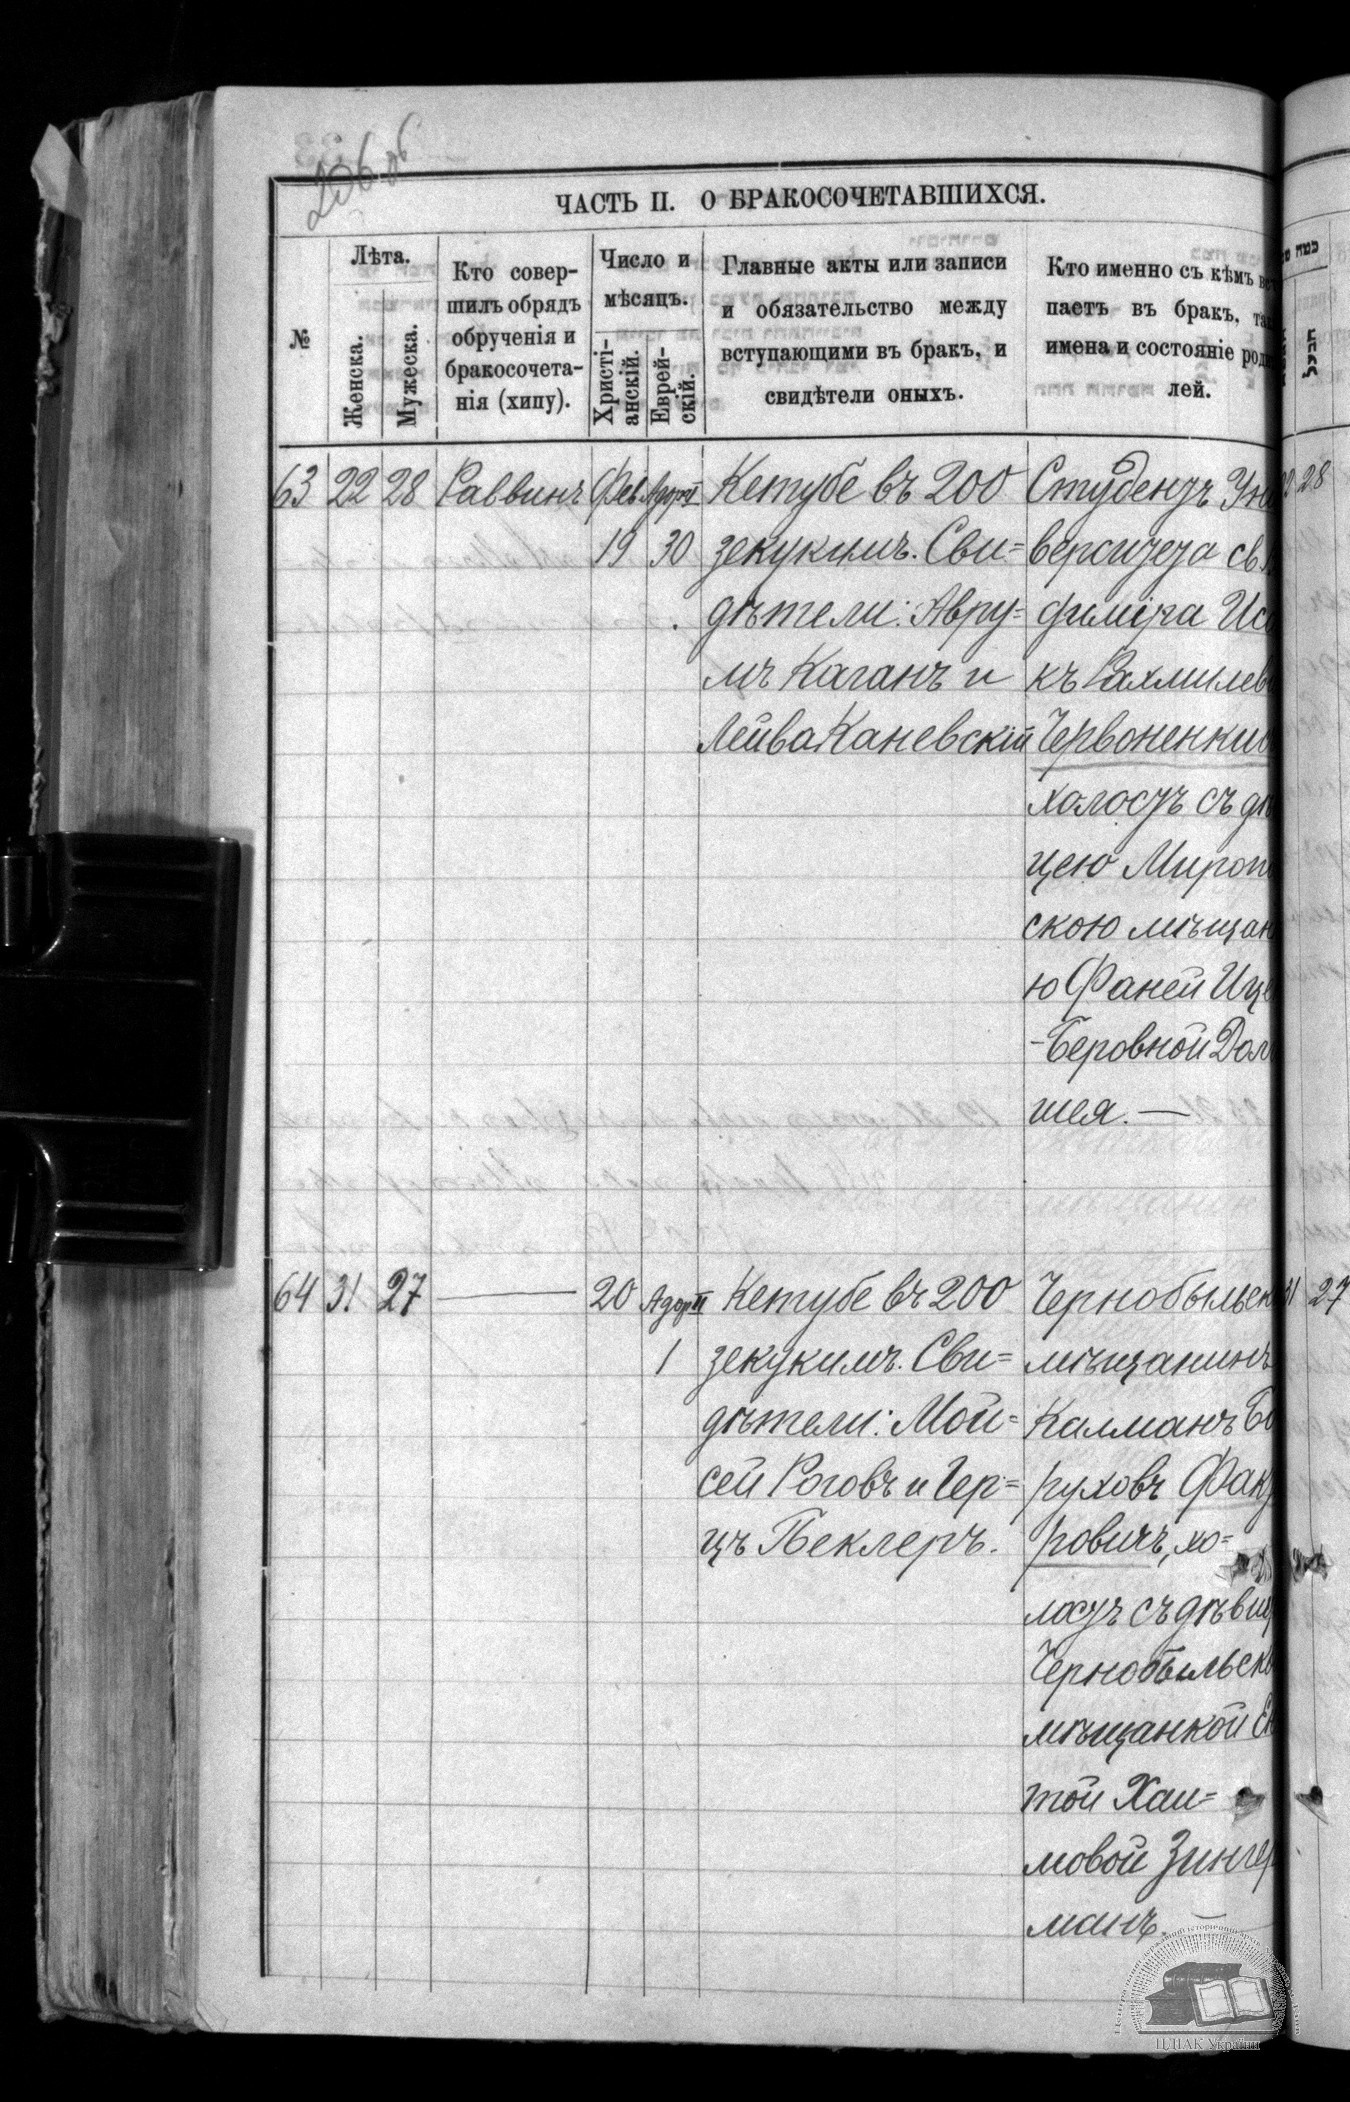 206 об
ЧАСТЬ II. О БРАКОСОЧЕТАВШИХСЯ.
№
Лѣта.
Женска.
Мужеска.
Кто совер-
шилъ обрядъ
обрученія и
бракосочета-
нія (хипу).
Число и
мѣсяцъ.
Христі-
анскій.
Еврей-
скій.
Главные акты или записи
и обязательство между
вступающими въ бракъ, и
свидѣтели оныхъ.
Кто именно съ кѣмъ вст
паетъ въ бракъ, так
имена и состояніе роди
лей.
63 22 28 Раввинъ Фев Адаръ
19 30
Кетубе въ 200
зекукимъ. Сви=
дѣтели: Авру=
мъ Каганъ и
Лейва Каневскій
Студентъ Уни
верситета св. 
диміра Иса
къ Рахмилев
Червоненкив
холостъ съ дѣ
цею Миропо
скою мѣщан
ю Фаней Ице
-Беровной Дол
шея. —
22 28
64 31 27 — 20 Адаръ II
1
Кетубе въ 200
зекукимъ. Сви=
дѣтели: Мой=
сей Роговъ и Гер=
цъ Беклеръ.
Чернобыльск
мѣщанинъ
Калманъ Бо
руховъ Факт
ровичъ, хо=
лостъ съ дѣвиц
Чернобыльско
мѣщанкой Ен
той Хаи=
мовой Зингер
манъ. —
31 27
ЦДІАК України